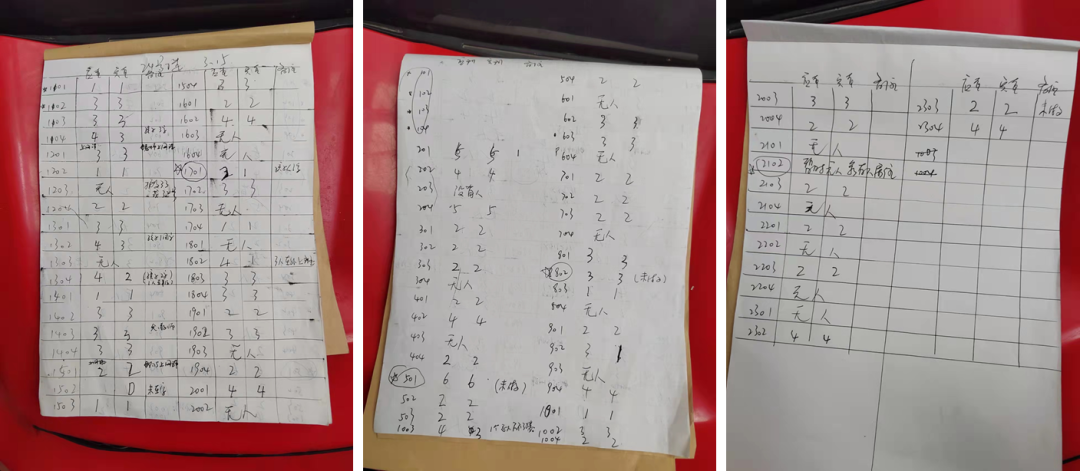 3-15
应查 实查 备注 应查 实查 备注
1101 1 1 1504 3 3
1102 3 3 1601 2 2
1103 3 3 1602 4 4
1104 4 3 1603 无人
1201 3 3 1604 无人
1202 1 1 1701 1
1203 无人 1702 3 3
1204 2 2 1703 无人
1301 3 3 1704 1 1
1302 4 3 1801 无人
1303 无人 1802 4
1304 4 2 1803 3 3
1401 1 1 1804 3 3
1402 3 3 1901 2 2
1403 3 3 1902 3 3
1404 3 3 1903 无人
1501 2 2 1904 2 2
1502 0 2001 4 4
1503 1 1 2002 无人
101 504 2 2
102 601 无人
103 602 3 3
104 603 3 3
201 5 5 1 604 无人
202 4 4 701 2 2
203 没有人 702 2 2
204 5 5 703 2 2
301 2 2 704 无人
302 2 2 801 3 3
303 2 2 802 3 3 (未做)
304 无人 803 1 1
401 2 2 804 无人
402 4 4 901 2 2
403 无人 902 3
404 2 2 903 无人
501 6 6 (未做) 904 4 4
502 2 2 1001 1 1
503 2 2 1002 3 3
1003 4 3 1004 2 2
应查 实查 备注 应查 实查 备注
2003 3 3 2303 2 2 未做
2004 2 2 2304 4 4
2101 无人
2102 暂时无人
2103 2 2
2104 无人
2201 2 2
2202 无人
2203 2 2
2204 无人
2301 无人
2302 4 4